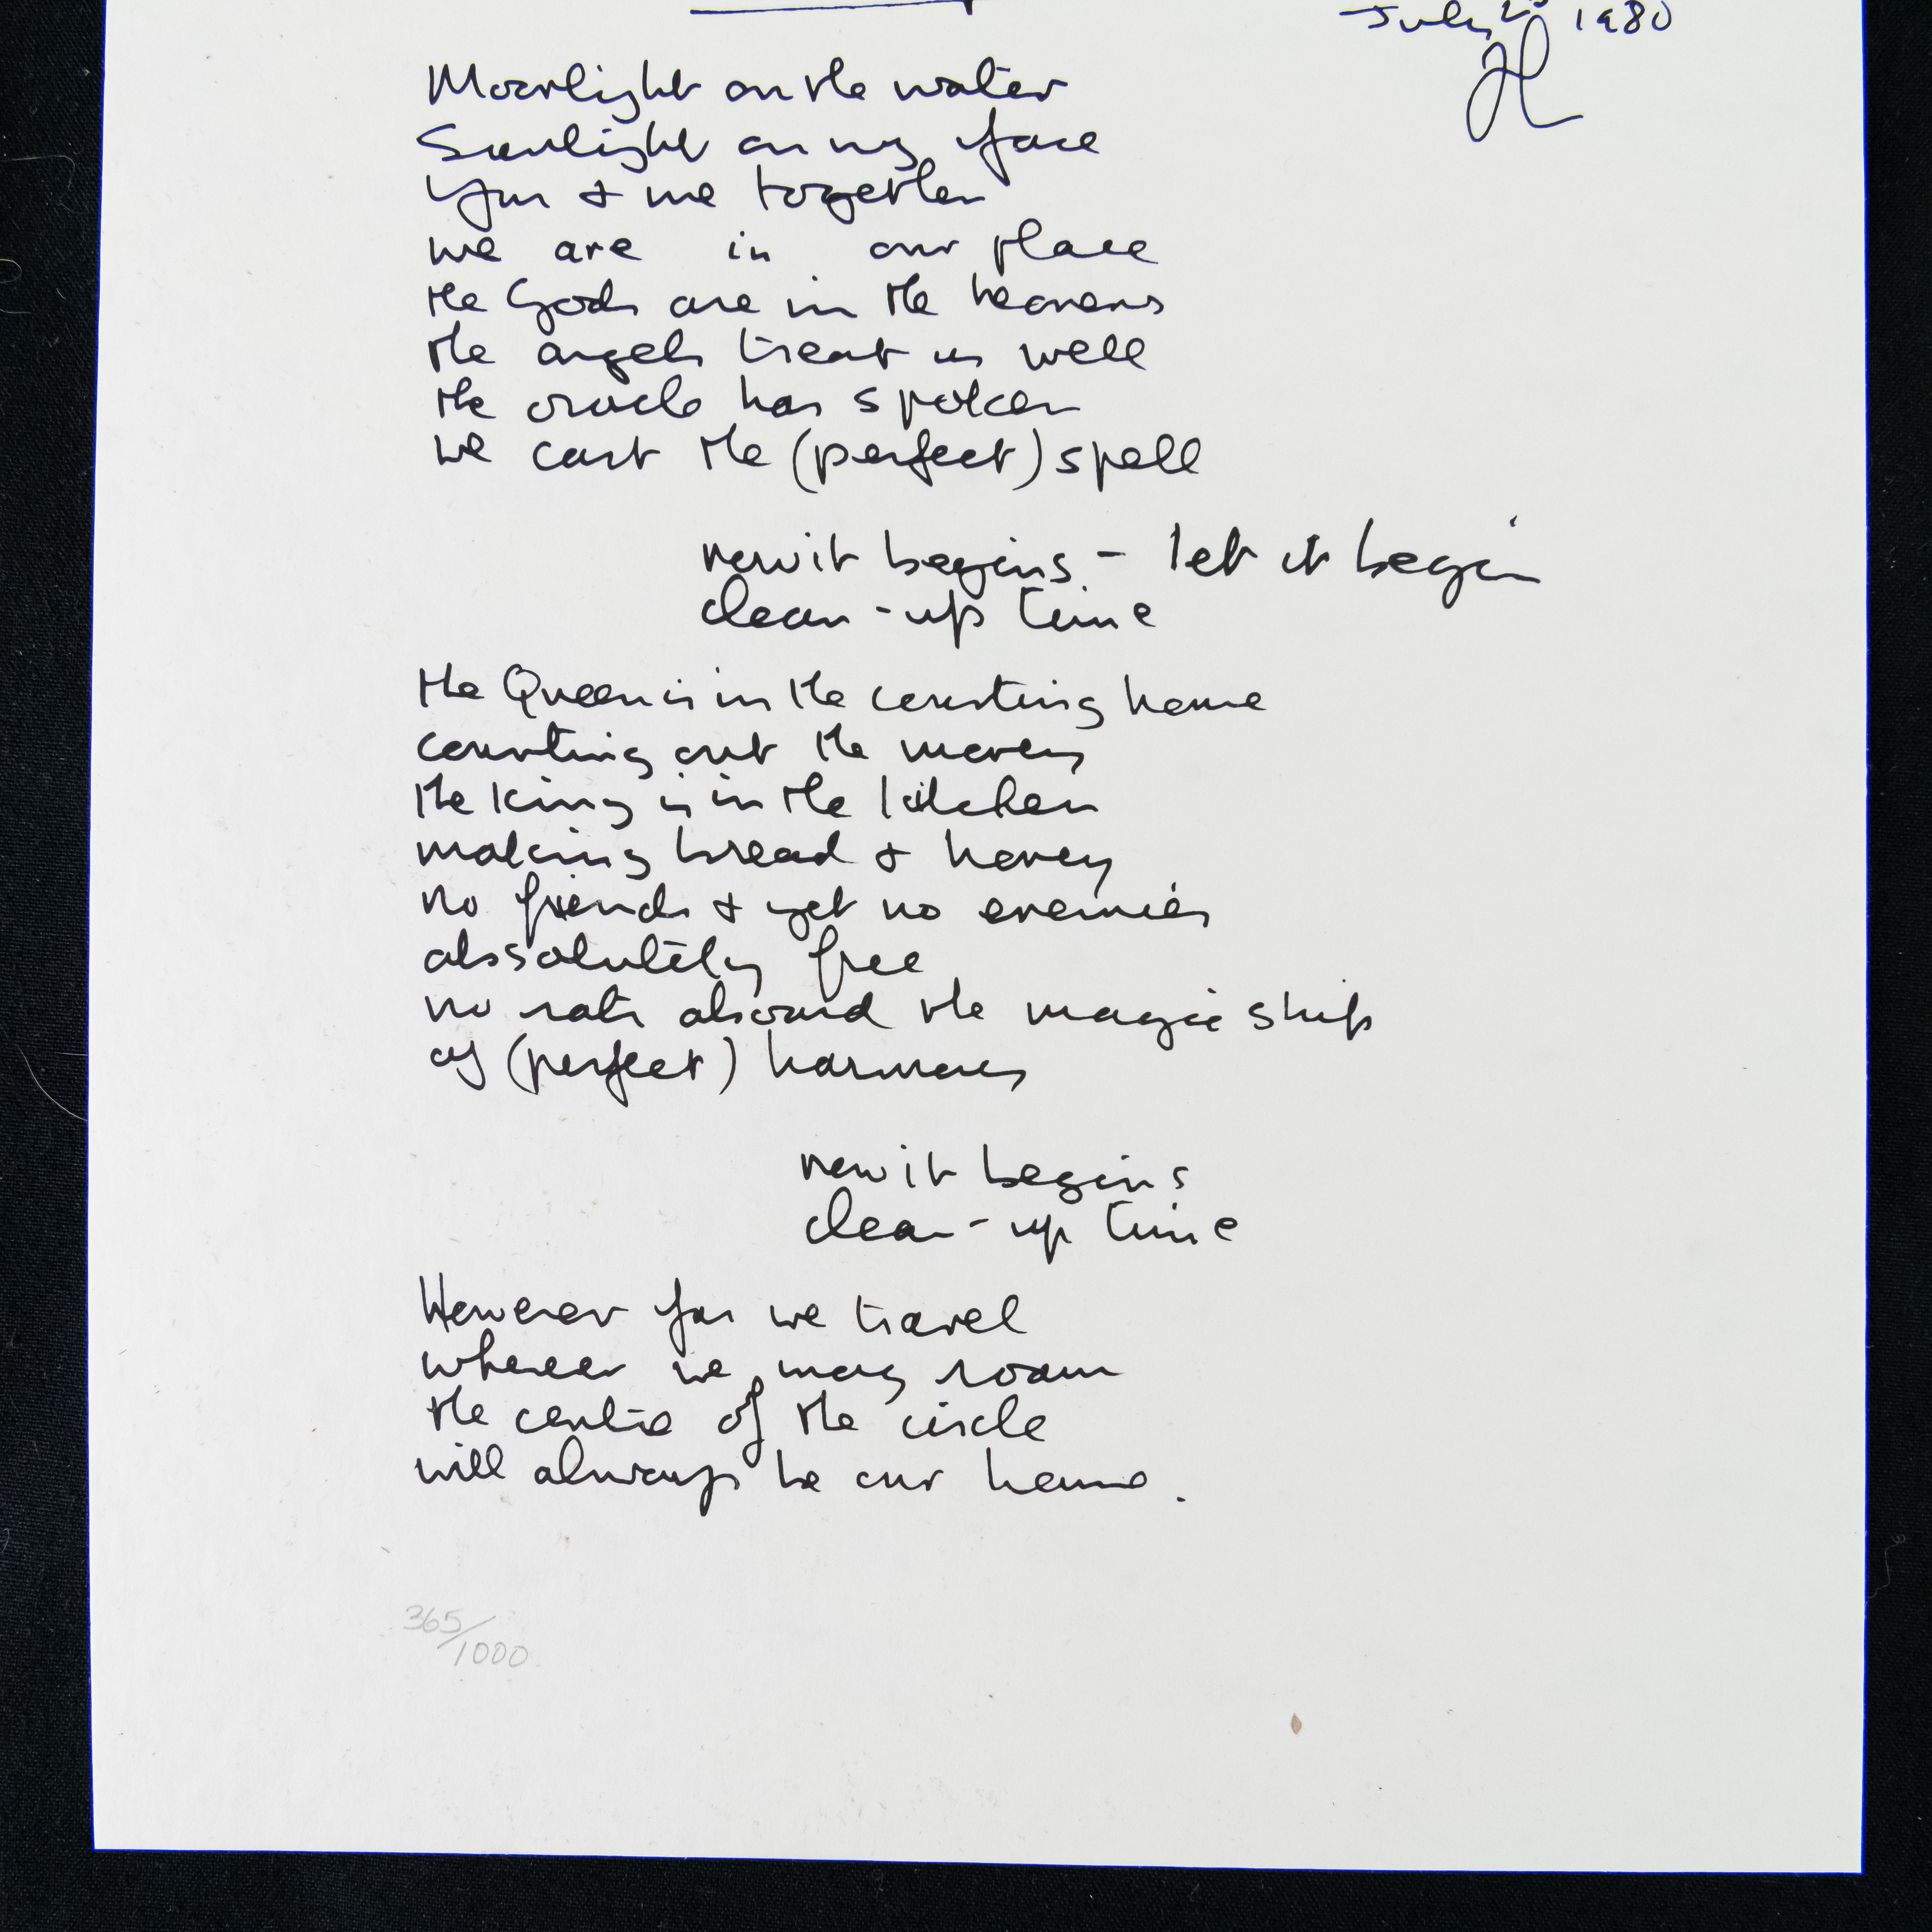 July 1980
JL
Moonlight on the water
Sunlight on my face
You & me together
we are in our place
the Gods are in the heavens
the angels treat us well
the oracle has spoken
we cast the (perfect) spell
now it begins - let it begin
clean-up time
the Queen is in the counting house
counting out the money
the King is in the kitchen
making bread & honey
no friends & yet no enemies
absolutely free
no rats aboard the magic ship
of (perfect) harmony
now it begins
clean-up time
However far we travel
wherever we may roam
the centre of the circle
will always be our home.
365/1000